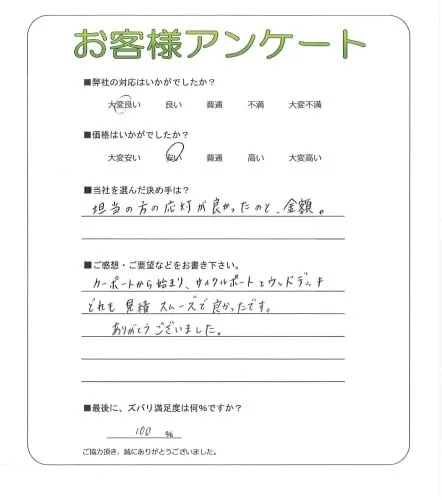 お客様アンケート
■弊社の対応はいかがでしたか？
大変良い 良い 普通 不満 大変不満
■価格はいかがでしたか？
大変安い 安い 普通 高い 大変高い
■当社を選んだ決め手は？
担当の方の応対が良かったのと、金額。
■ご感想・ご要望などをお書き下さい。
カーポートから始まり、サイクルポートとウッドデッキ
どれも見積スムーズで良かったです。
ありがとうございました。
■最後に、ズバリ満足度は何％ですか？
100 ％
ご協力頂き、誠にありがとうございました。